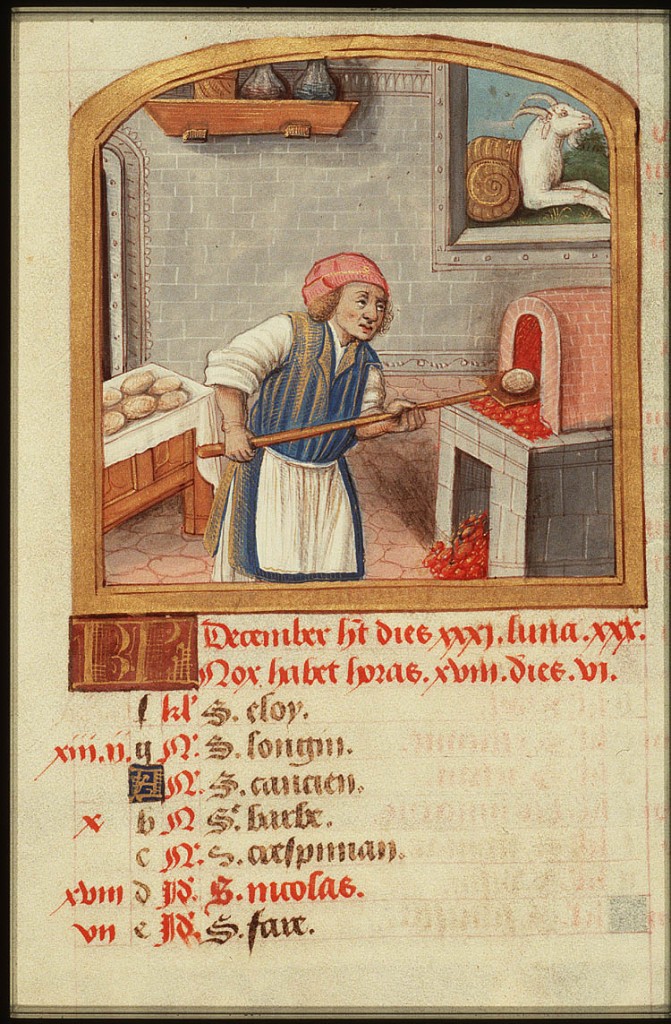 KL December ht dies xxxi. luna. xxx.
Nox habet horas. xviii. dies. vi.
f kl' S. eloy.
xiii. ii. g N. S. longin.
A N. S. cancien.
x b N S. barbe.
c N. S. crespinian.
xviii d Id'. S. nicolas.
vii e Id'. S. fare.